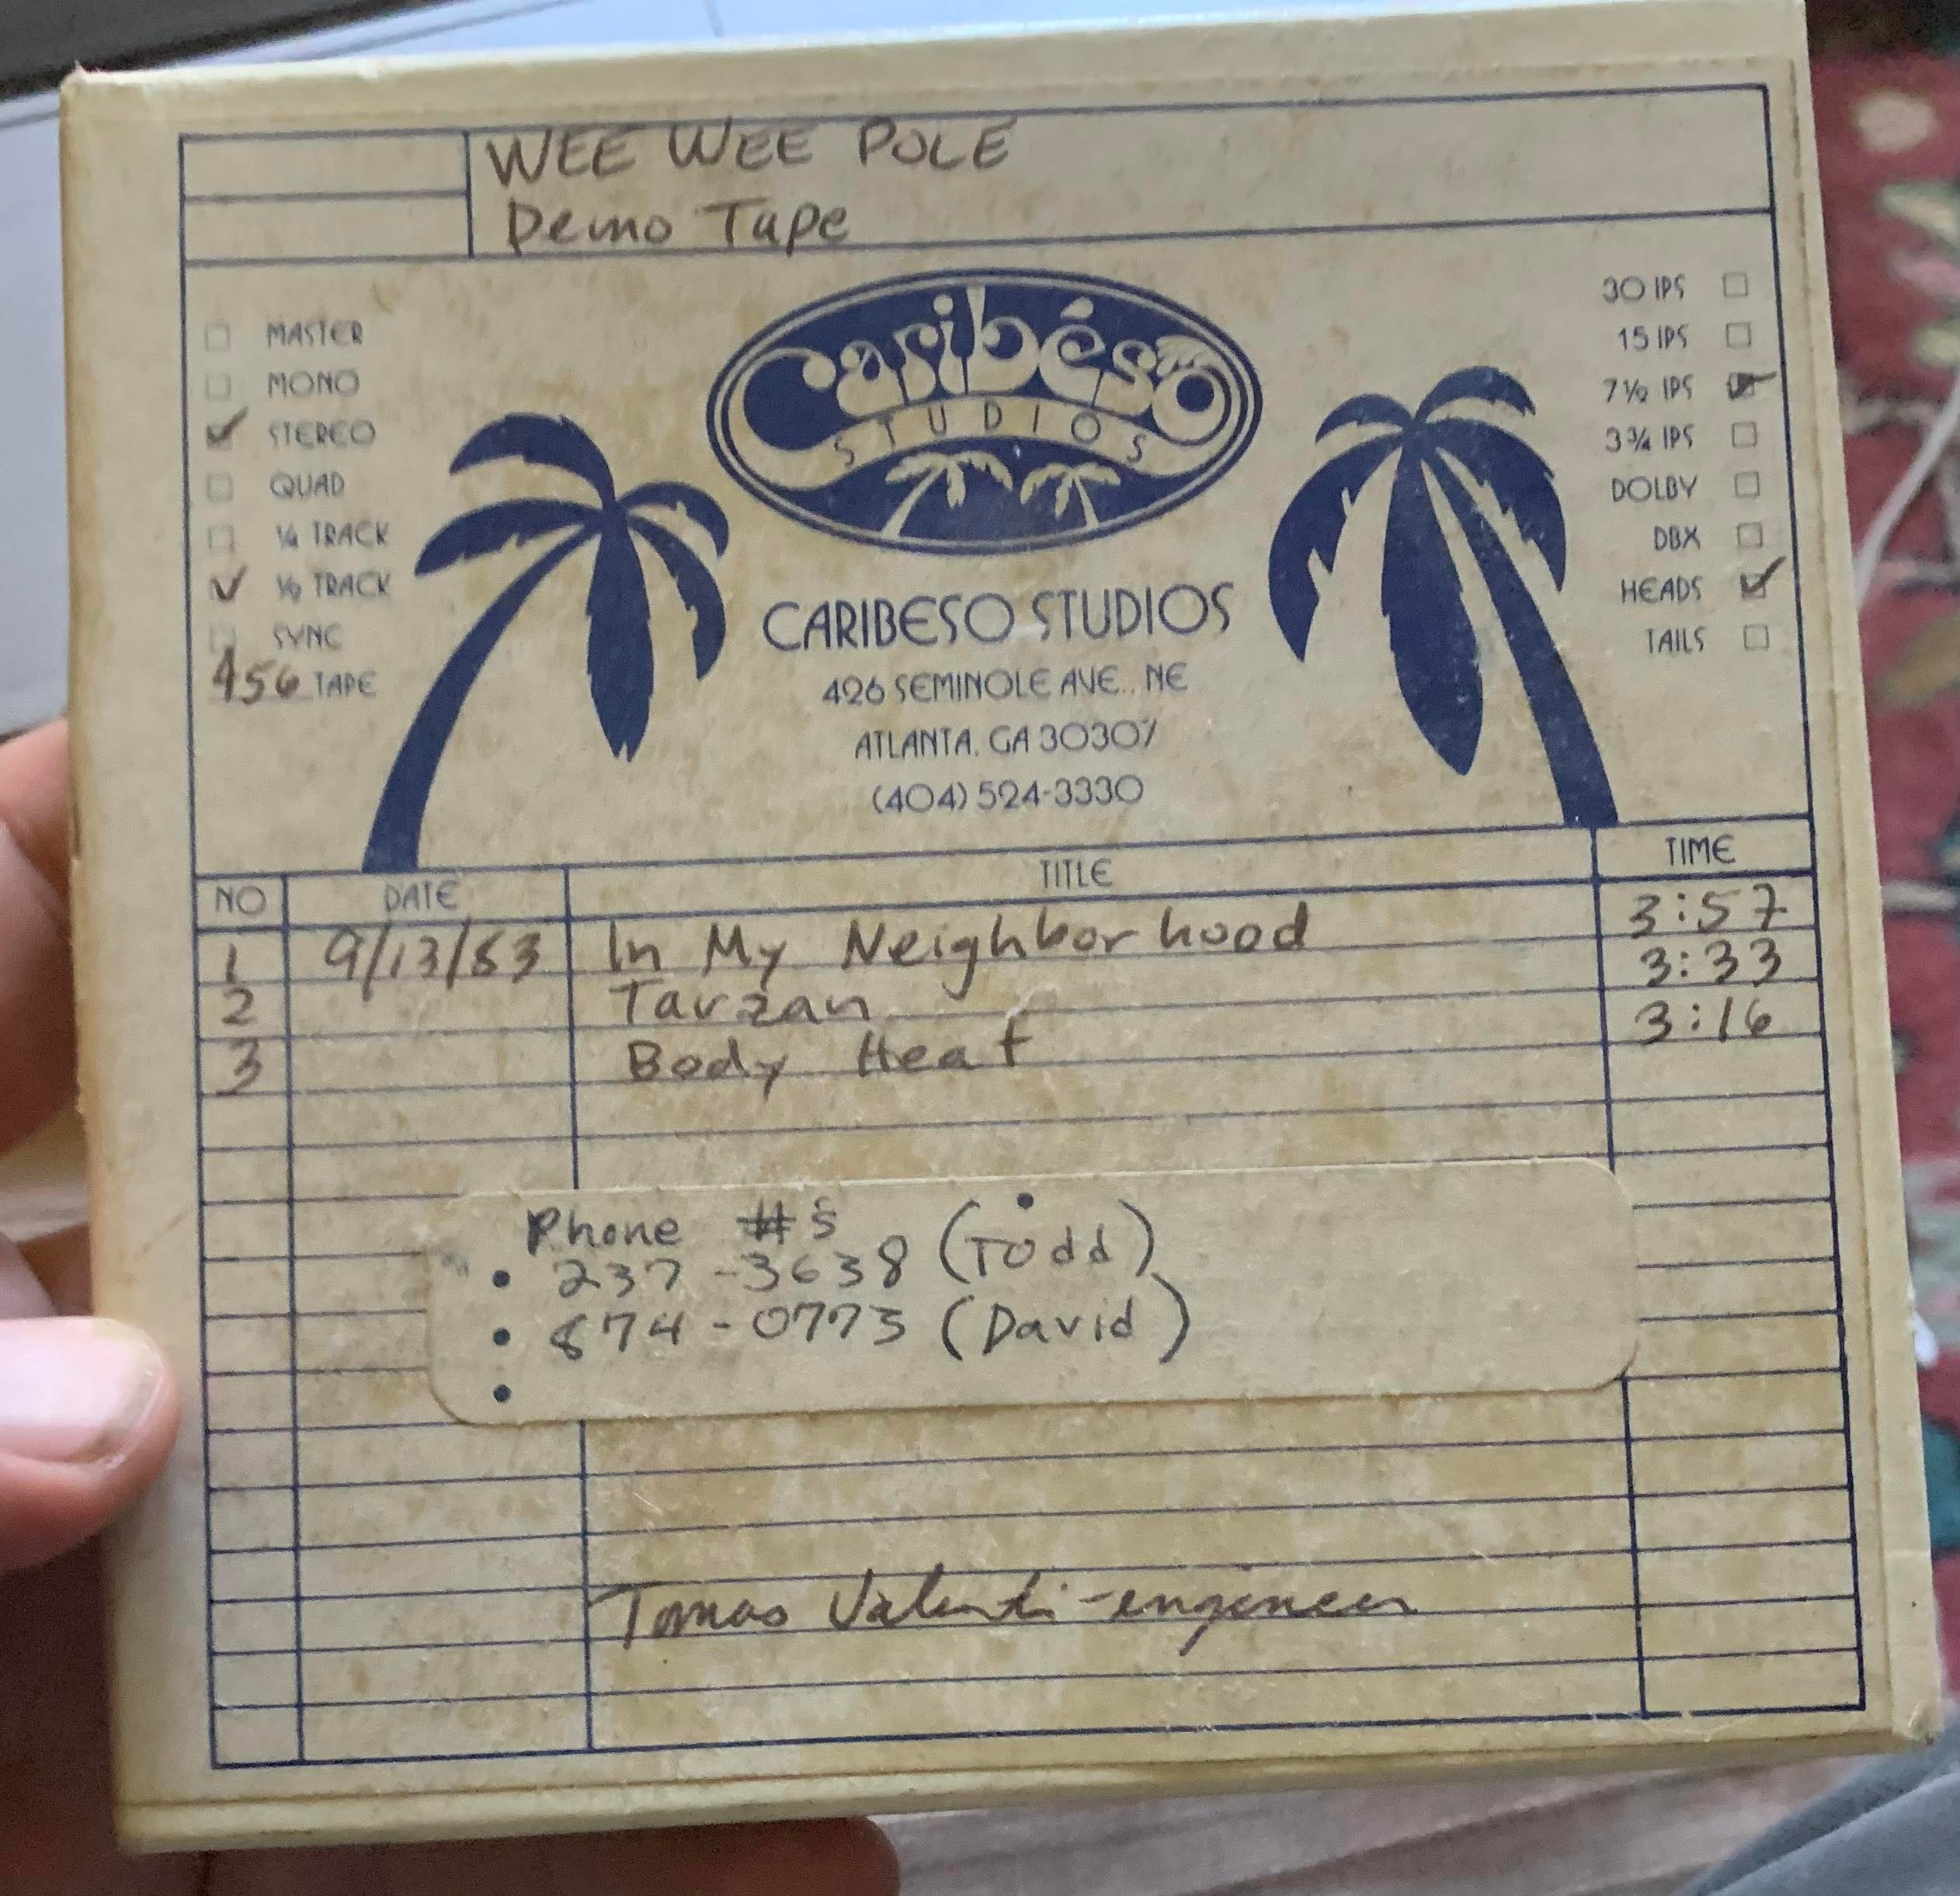 WEE WEE POLE
Demo Tape
MASTER
MONO
STEREO
QUAD
¼ TRACK
½ TRACK
SYNC
456 TAPE
Caribéso
STUDIOS
CARIBESO STUDIOS
426 SEMINOLE AVE., NE
ATLANTA, GA 30307
(404) 524-3330
30 IPS
15 IPS
7½ IPS
3¾ IPS
DOLBY
DBX
HEADS
TAILS
NO DATE TITLE TIME
1 9/13/83 In My Neighborhood 3:57
2 Tarzan 3:33
3 Body Heat 3:16
Phone #s
• 237-3638 (Todd)
• 874-0773 (David)
•
Tomas Valenti-engineer